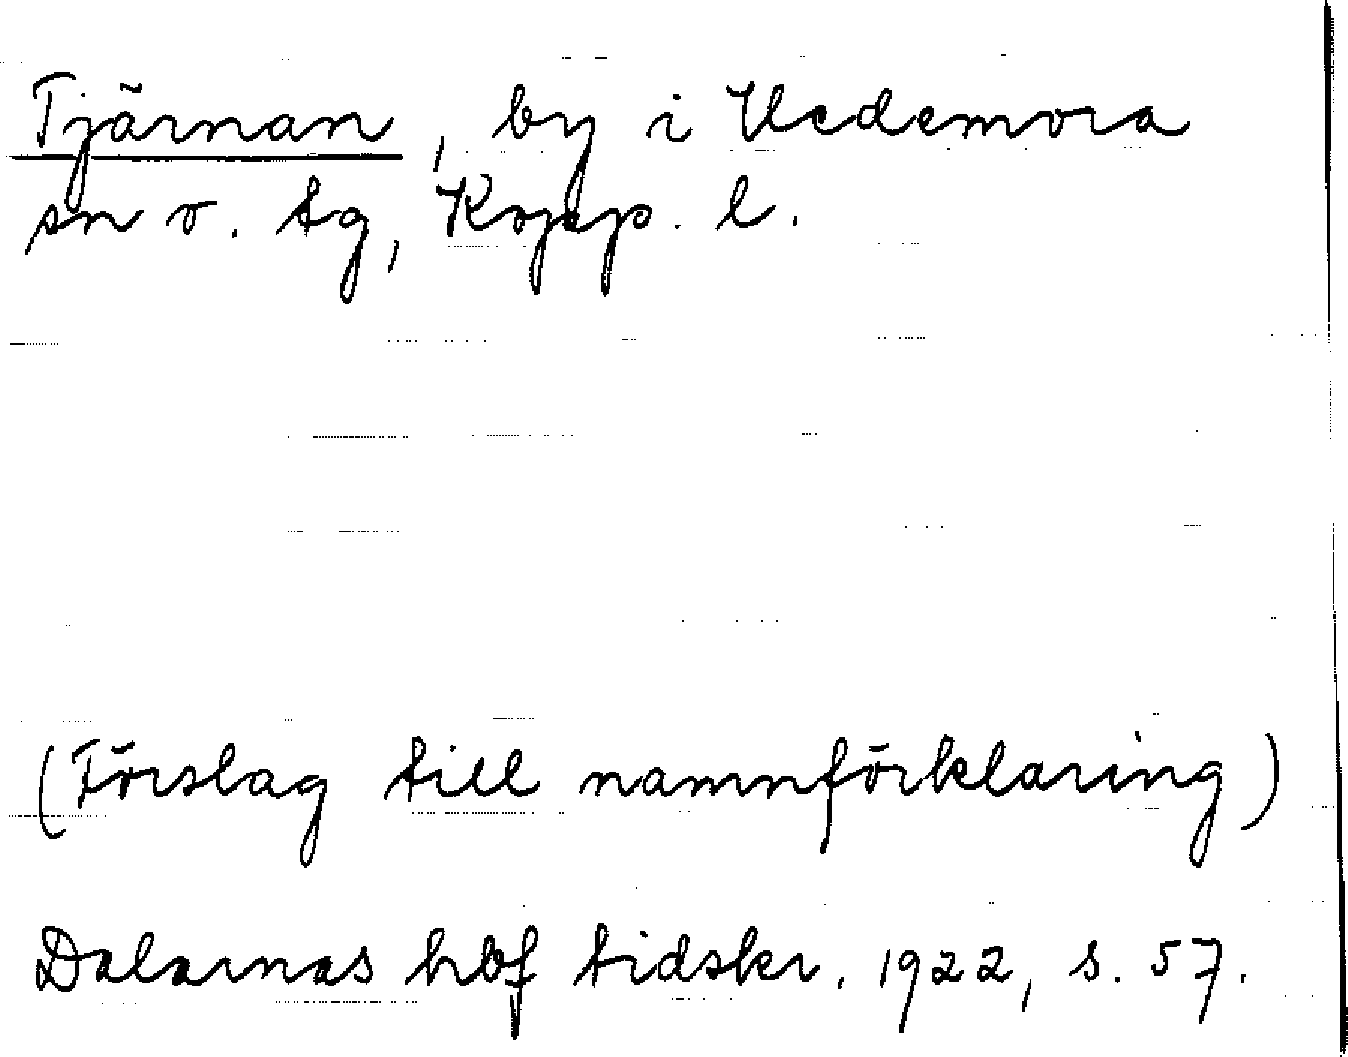 Tjärnan, by i Hedemora
sn o. tg, Kopp. l.
(Förslag till namnförklaring)
Dalarnas hbf tidskr. 1922, s. 57.